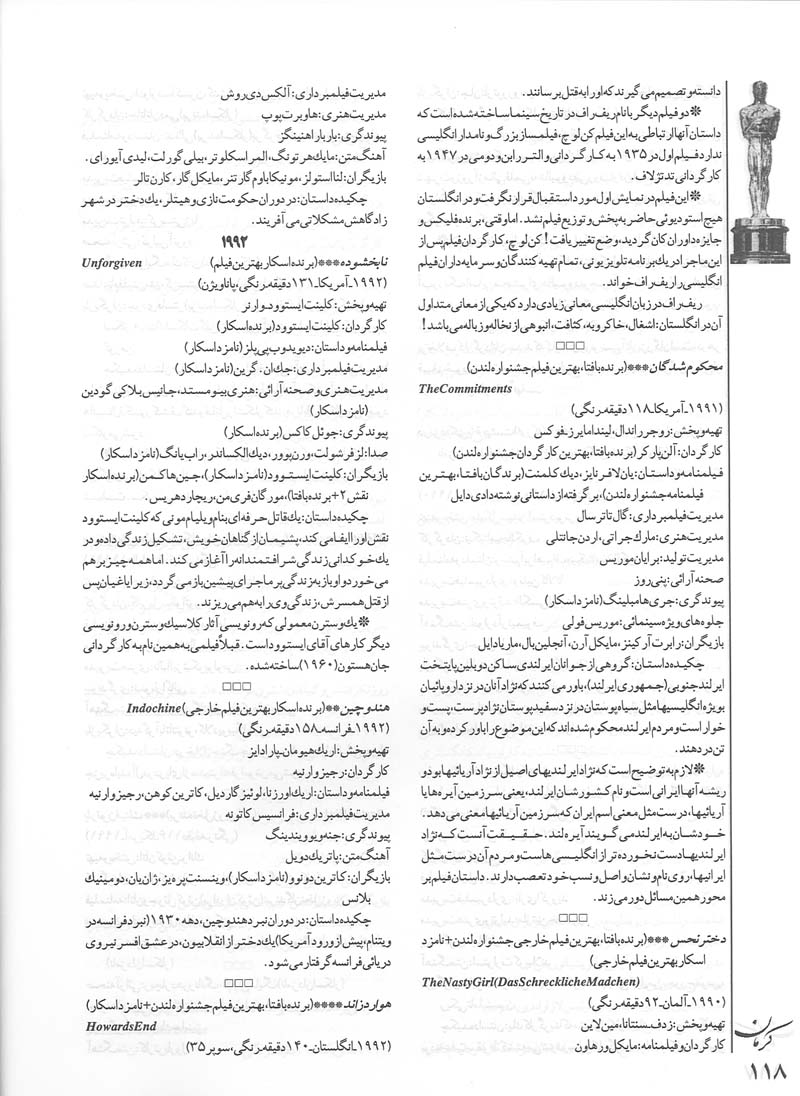 دانسته و تصمیم می گیرند که او را به قتل برسانند.
❋ دو فیلم دیگر با نام ریف راف در تاریخ سینما ساخته شده است که
داستان آنها ارتباطی به این فیلم کن لوچ، فیلمساز بزرگ و نامدار انگلیسی
ندارد فیلم اول در ۱۹۳۵ به کارگردانی والتر رابن و دومی در ۱۹۴۷ به
کارگردانی تد تزلاف.
❋ این فیلم در نمایش اول مورد استقبال قرار نگرفت و در انگلستان
هیچ استودیوئی حاضر به پخش و توزیع فیلم نشد. اما وقتی، برنده فلیکس و
جایزه داوران کان گردید، وضع تغییر یافت! کن لوچ، کارگردان فیلم پس از
این ماجرا در یک برنامه تلویزیونی، تمام تهیه کنندگان و سرمایه داران فیلم
انگلیسی را ریف راف خواند.
ریف راف در زبان انگلیسی معانی زیادی دارد که یکی از معانی متداول
آن در انگلستان: اشغال، خاکروبه، کثافت، انبوهی از نخاله و زباله می باشد!
□□□
محکوم شدگان *** (برنده بافتا، بهترین فیلم جشنواره لندن)
The Commitments
(۱۹۹۱ـ آمریکا ـ ۱۱۸ دقیقه ـ رنگی)
تهیه و پخش: روجر راندال، لیندا مایرز ـ فوکس
کارگردان: آلن پارکر (برنده بافتا، بهترین کارگردان جشنواره لندن)
فیلمنامه و داستان: یان لافرنایز، دیک کلمنت (برندگان بافتا، بهترین
فیلمنامه جشنواره لندن)، برگرفته از داستانی نوشته دادی دایل
مدیریت فیلمبرداری: گال تاترسال
مدیریت هنری: مارک جراتی، اردن جانتلی
مدیریت تولید: برایان موریس
صحنه آرائی: پنی روز
پیوندگری: جری هامبلینگ (نامزد اسکار)
جلوه های ویژه سینمائی: موریس فولی
بازیگران: رابرت آرکینز، مایکل آرن، آنجلین بال، ماریا دایل
چکیده داستان: گروهی از جوانان ایرلندی ساکن دوبلین پایتخت
ایرلند جنوبی (جمهوری ایرلند)، باور می کنند که نژاد آنان در نزد اروپائیان
بویژه انگلیسیها مثل سیاه پوستان در نزد سفید پوستان نژاد پرست، پست و
خوار است و مردم ایرلند محکوم شده اند که این موضوع را باور کرده و به آن
تن در دهند.
❋ لازم به توضیح است که نژاد ایرلندیهای اصیل از نژاد آریائیها بود و
ریشه آنها ایرانی است و نام کشورشان ایرلند، یعنی سرزمین آیره ها یا
آریائیها، درست مثل معنی اسم ایران که سرزمین آریائیها معنی می دهد.
خودشان به ایرلند می گویند آیره لند. حقیقت آنست که نژاد
ایرلندیها دست نخورده تر از انگلیسی هاست و مردم آن درست مثل
ایرانیها، روی نام و نشان و اصل و نسب خود تعصب دارند. داستان فیلم بر
محور همین مسائل دور می زند.
□□□
دختر نحس *** (برنده بافتا، بهترین فیلم خارجی جشنواره لندن + نامزد
اسکار بهترین فیلم خارجی)
The Nasty Girl (Das Schreckliche Madchen)
(۱۹۹۰ـ آلمان ـ ۹۲ دقیقه ـ رنگی)
تهیه و پخش: زد.ف. سنتانا، مین لاین
کارگردان و فیلمنامه: مایکل ورهاون
مدیریت فیلمبرداری: آلکس دی روش
مدیریت هنری: هاوبرت پوپ
پیوندگری: باربارا هنینگز
آهنگ متن: مایک هرتونگ، المر اسکلوتر، بیلی گورلت، لیدی آیورای.
بازیگران: لنا استولز، مونیکا باوم گارتنر، مایکل گار، کارن تالر
چکیده داستان: در دوران حکومت نازی و هیتلر، یک دختر در شهر
زادگاهش مشکلاتی می آفریند.
۱۹۹۲
نابخشوده *** (برنده اسکار بهترین فیلم) Unforgiven
(۱۹۹۲ـ آمریکا ـ ۱۳۱ دقیقه ـ رنگی، پاناویژن)
تهیه و پخش: کلینت ایستوود ـ وارنر
کارگردان: کلینت ایستوود (برنده اسکار)
فیلمنامه و داستان: دیوید وب پی پلز (نامزد اسکار)
مدیریت فیلمبرداری: جک ان. گرین (نامزد اسکار)
مدیریت هنری و صحنه آرائی: هنری بیومستد، جانیس بلاکی گودین
(نامزد اسکار)
پیوندگری: جوئل کاکس (برنده اسکار)
صدا: لزفرشولت، ورن پوور، دیک الکساندر، راب یانگ (نامزد اسکار)
بازیگران: کلینت ایستوود (نامزد اسکار)، جین هاکمن (برنده اسکار
نقش ۲ + برنده بافتا)، مورگان فری من، ریچارد هریس.
چکیده داستان: یک قاتل حرفه ای بنام ویلیام مونی که کلینت ایستوود
نقش او را ایفا می کند، پشیمان از گناهان خویش، تشکیل زندگی داده و در
یک خوکدانی زندگی شرافتمندانه را آغاز می کند. اما همه چیز بر هم
می خورد و او باز به زندگی پر ماجرای پیشین باز می گردد، زیرا یاغیان پس
از قتل همسرش، زندگی وی را به هم می ریزند.
❋ یک وسترن معمولی که رونویسی آثار کلاسیک وسترن و رونویسی
دیگر کارهای آقای ایستوود است. قبلاً فیلمی به همین نام به کارگردانی
جان هستون (۱۹۶۰) ساخته شده.
□□□
هندوچین ** (برنده اسکار بهترین فیلم خارجی) Indochine
(۱۹۹۲ـ فرانسه ـ ۱۵۸ دقیقه ـ رنگی)
تهیه و پخش: اریک هیومان ـ پارادایز
کارگردان: رجیز وارنیه
فیلمنامه و داستان: اریک اورزنا، لوئیز گاردیل، کاترین کوهن، رجیز وارنیه
مدیریت فیلمبرداری: فرانسیس کاتونه
پیوندگری: جنه ویو ویندینگ
آهنگ متن: پاتریک دویل
بازیگران: کاترین دونوو (نامزد اسکار)، وینسنت پره یز، ژان یان، دومینیک
بلانس
چکیده داستان: در دوران نبرد هندوچین، دهه ۱۹۳۰ (نبرد فرانسه در
ویتنام، پیش از ورود آمریکا) یک دختر از انقلابیون، در عشق افسر نیروی
دریائی فرانسه گرفتار می شود.
□□□
هواردز اند **** (برنده بافتا، بهترین فیلم جشنواره لندن + نامزد اسکار)
Howards End
(۱۹۹۲ـ انگلستان ـ ۱۴۰ دقیقه ـ رنگی، سوپر ۳۵)
کرمان
۱۱۸